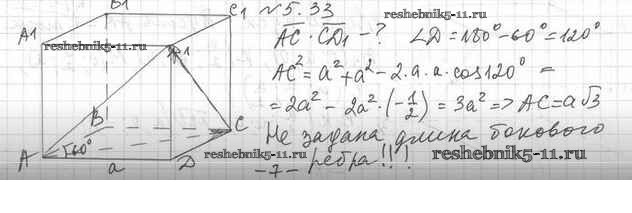 №5.33
B1
C1
A1
D1
reshebnik5-11.ru
reshebnik5-11.ru
AC · CD₁ - ? ∠D = 180° - 60° = 120°
AC² = a² + a² - 2·a·a·cos120° =
= 2a² - 2a²·(-1/2) = 3a² => AC = a√3
Не задана длина бокового
ребра!!!
B
C
A
60°
a
D
reshebnik5-11.ru
reshebnik5-11.ru
-7-